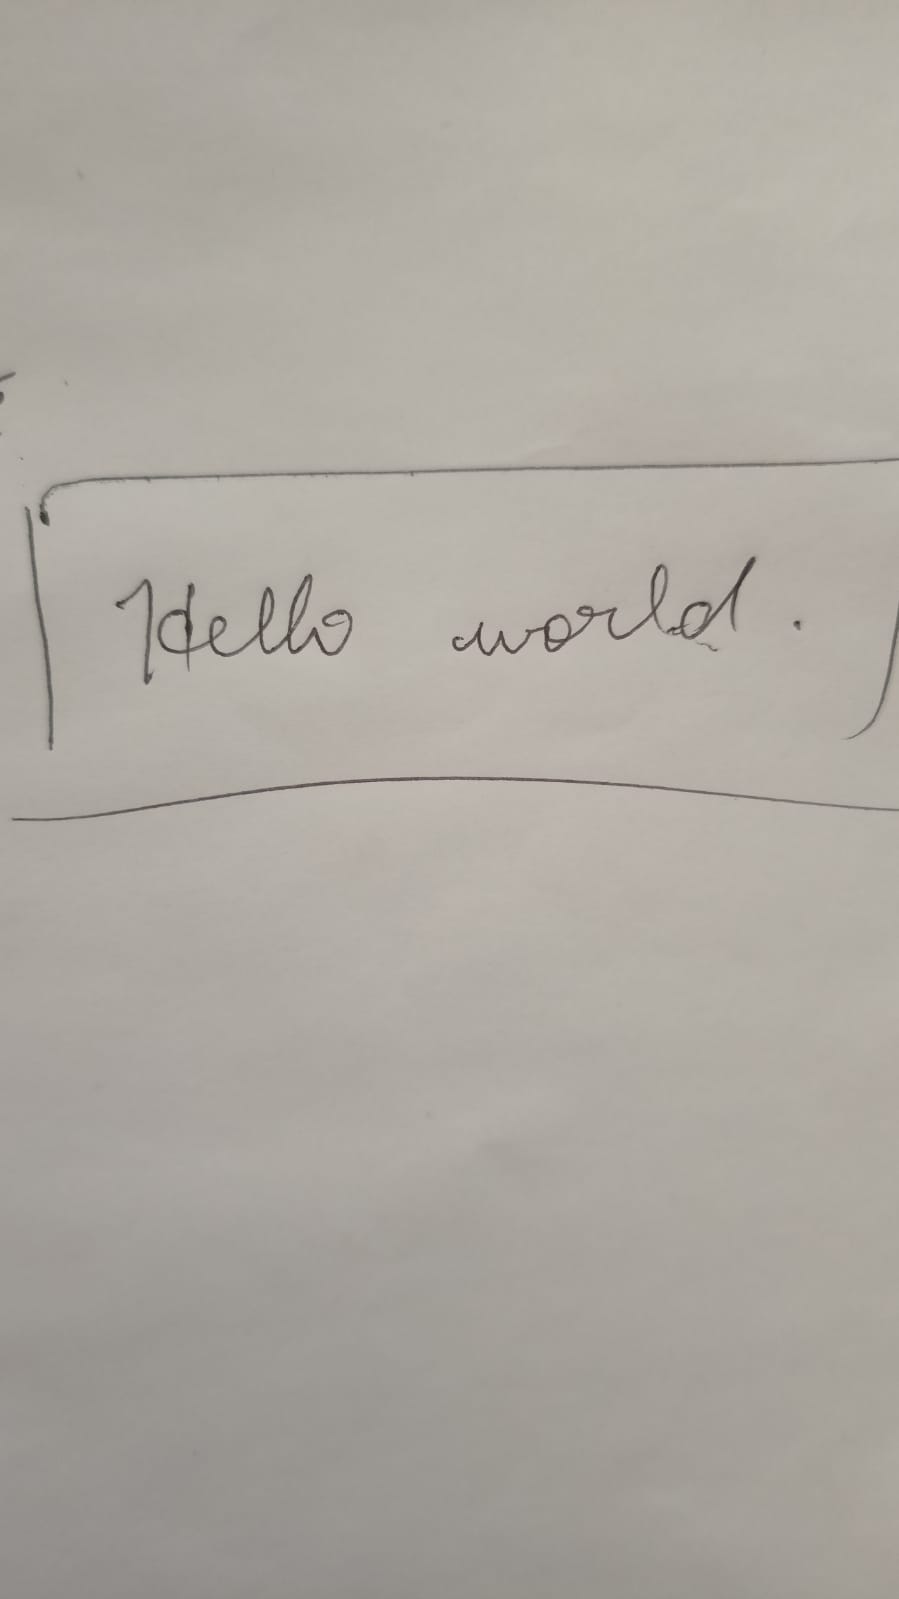 Hello world.